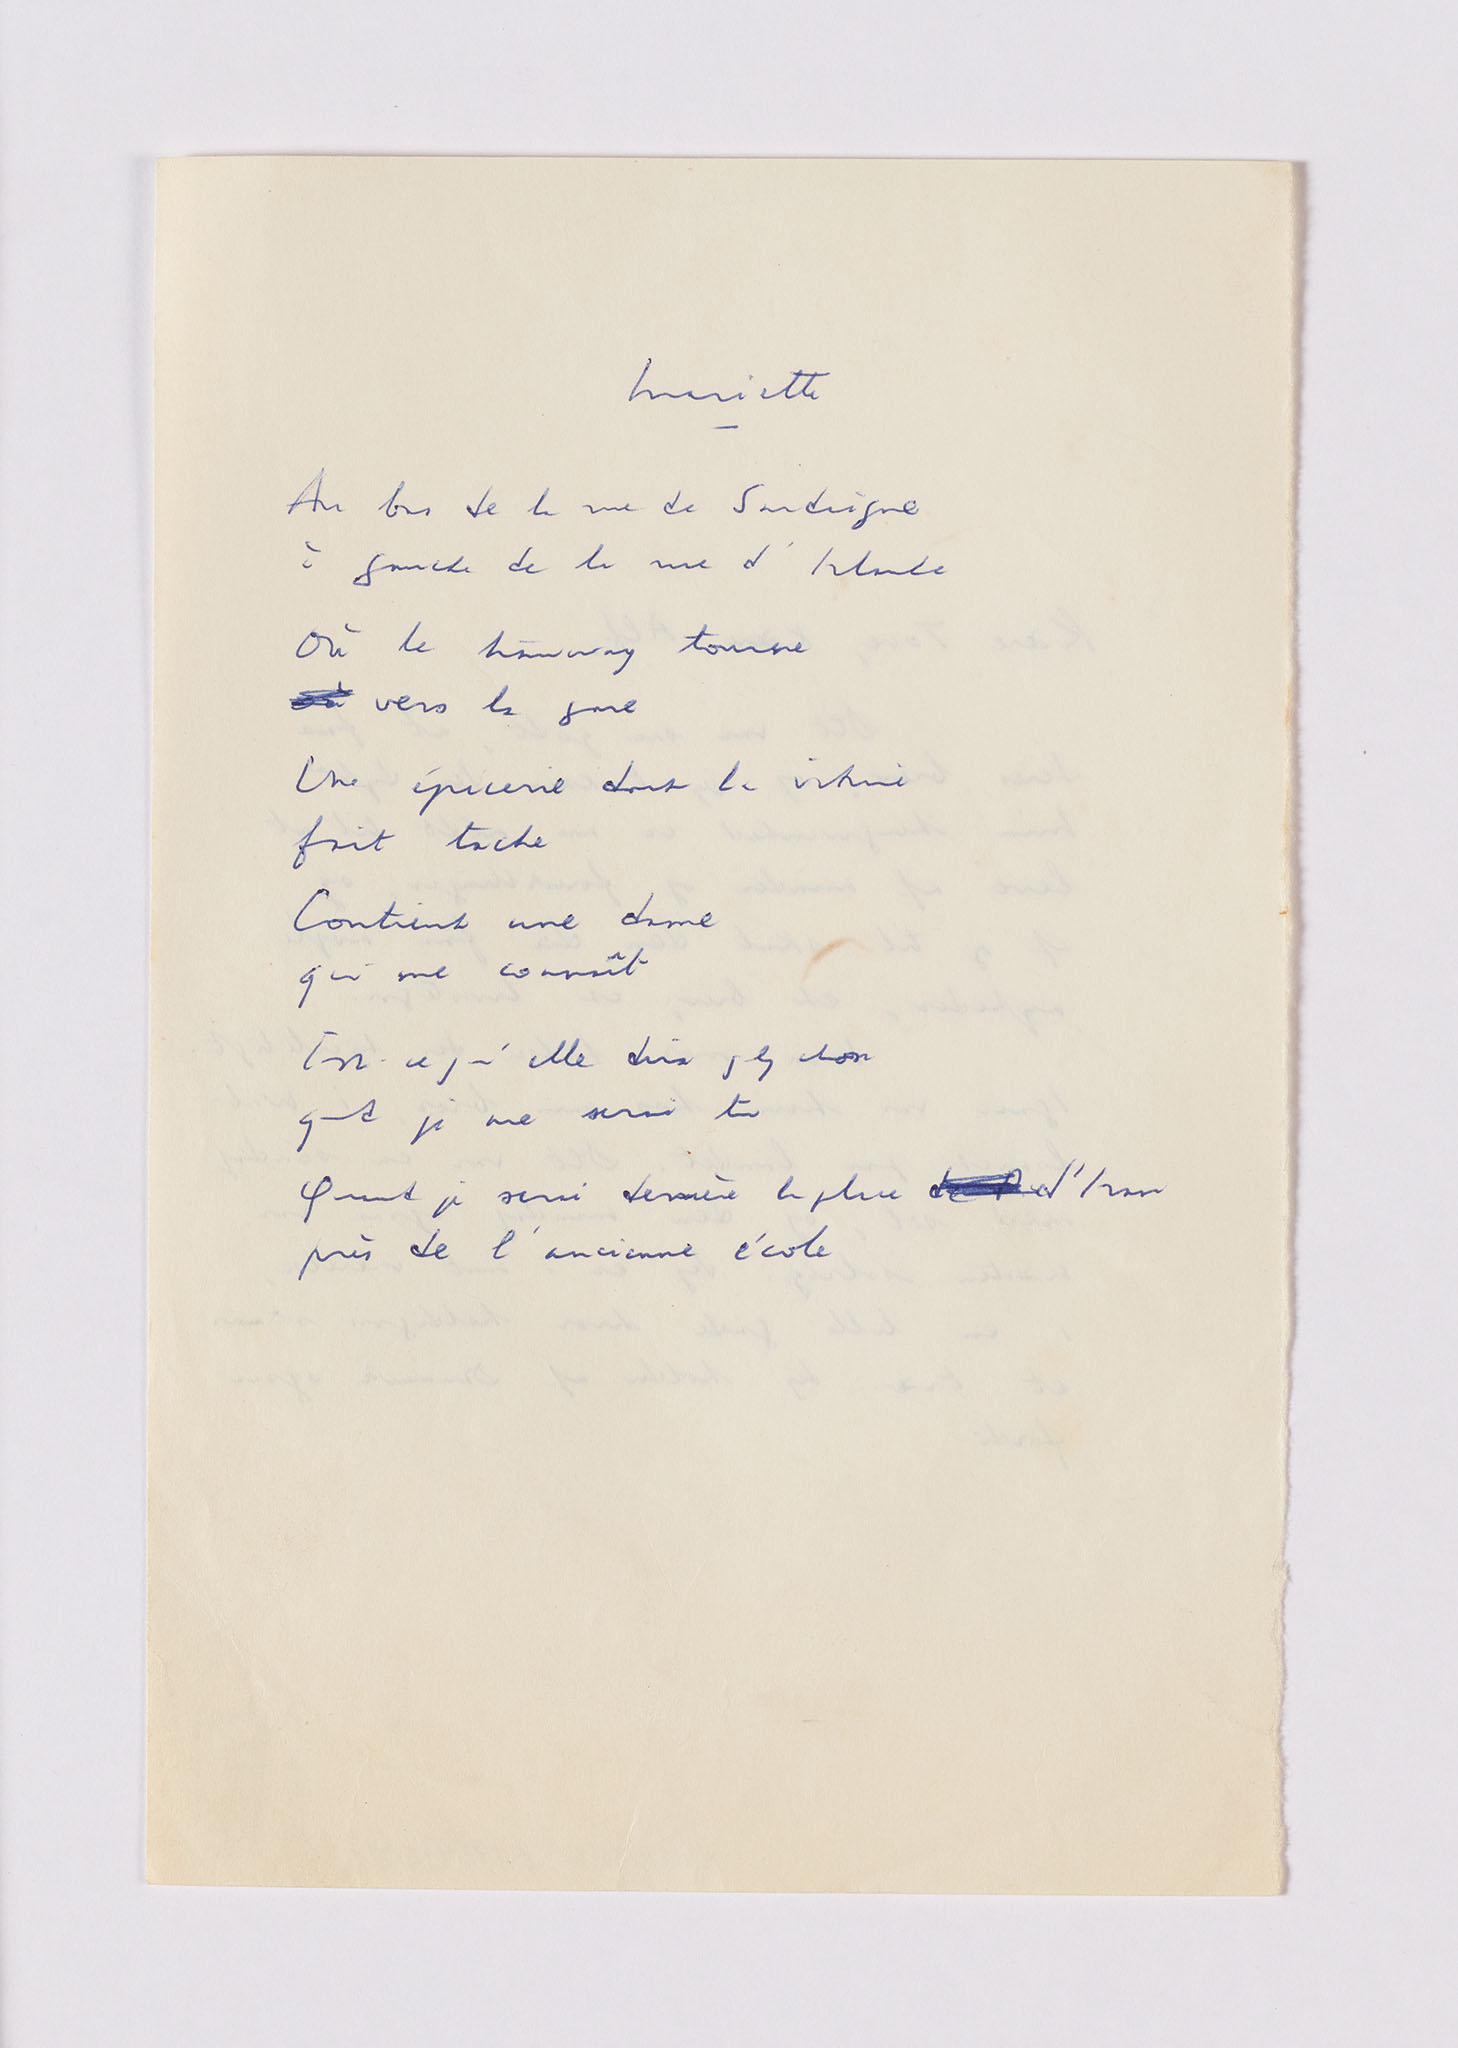 Mariette
Au bas de la rue de Sardaigne
à gauche de la rue d'Irlande
Où le tramway tourne
vers la gare
Une épicerie dont la vitrine
fait tache
Contient une dame
qui me connaît
Est-ce qu'elle dira qlq chose
quand je me serai tu
Quand je serai derrière la place d'Iran
près de l'ancienne école